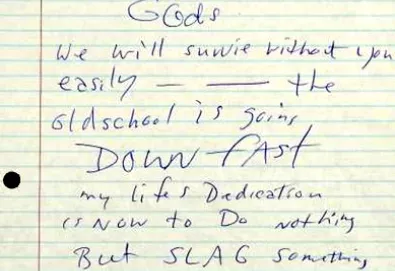 Gods
We will suvvie without you
easily — —— the
oldschool is going
DOWN fAST
my lifes Dedication
is NOW to Do nothing
But SLAG something